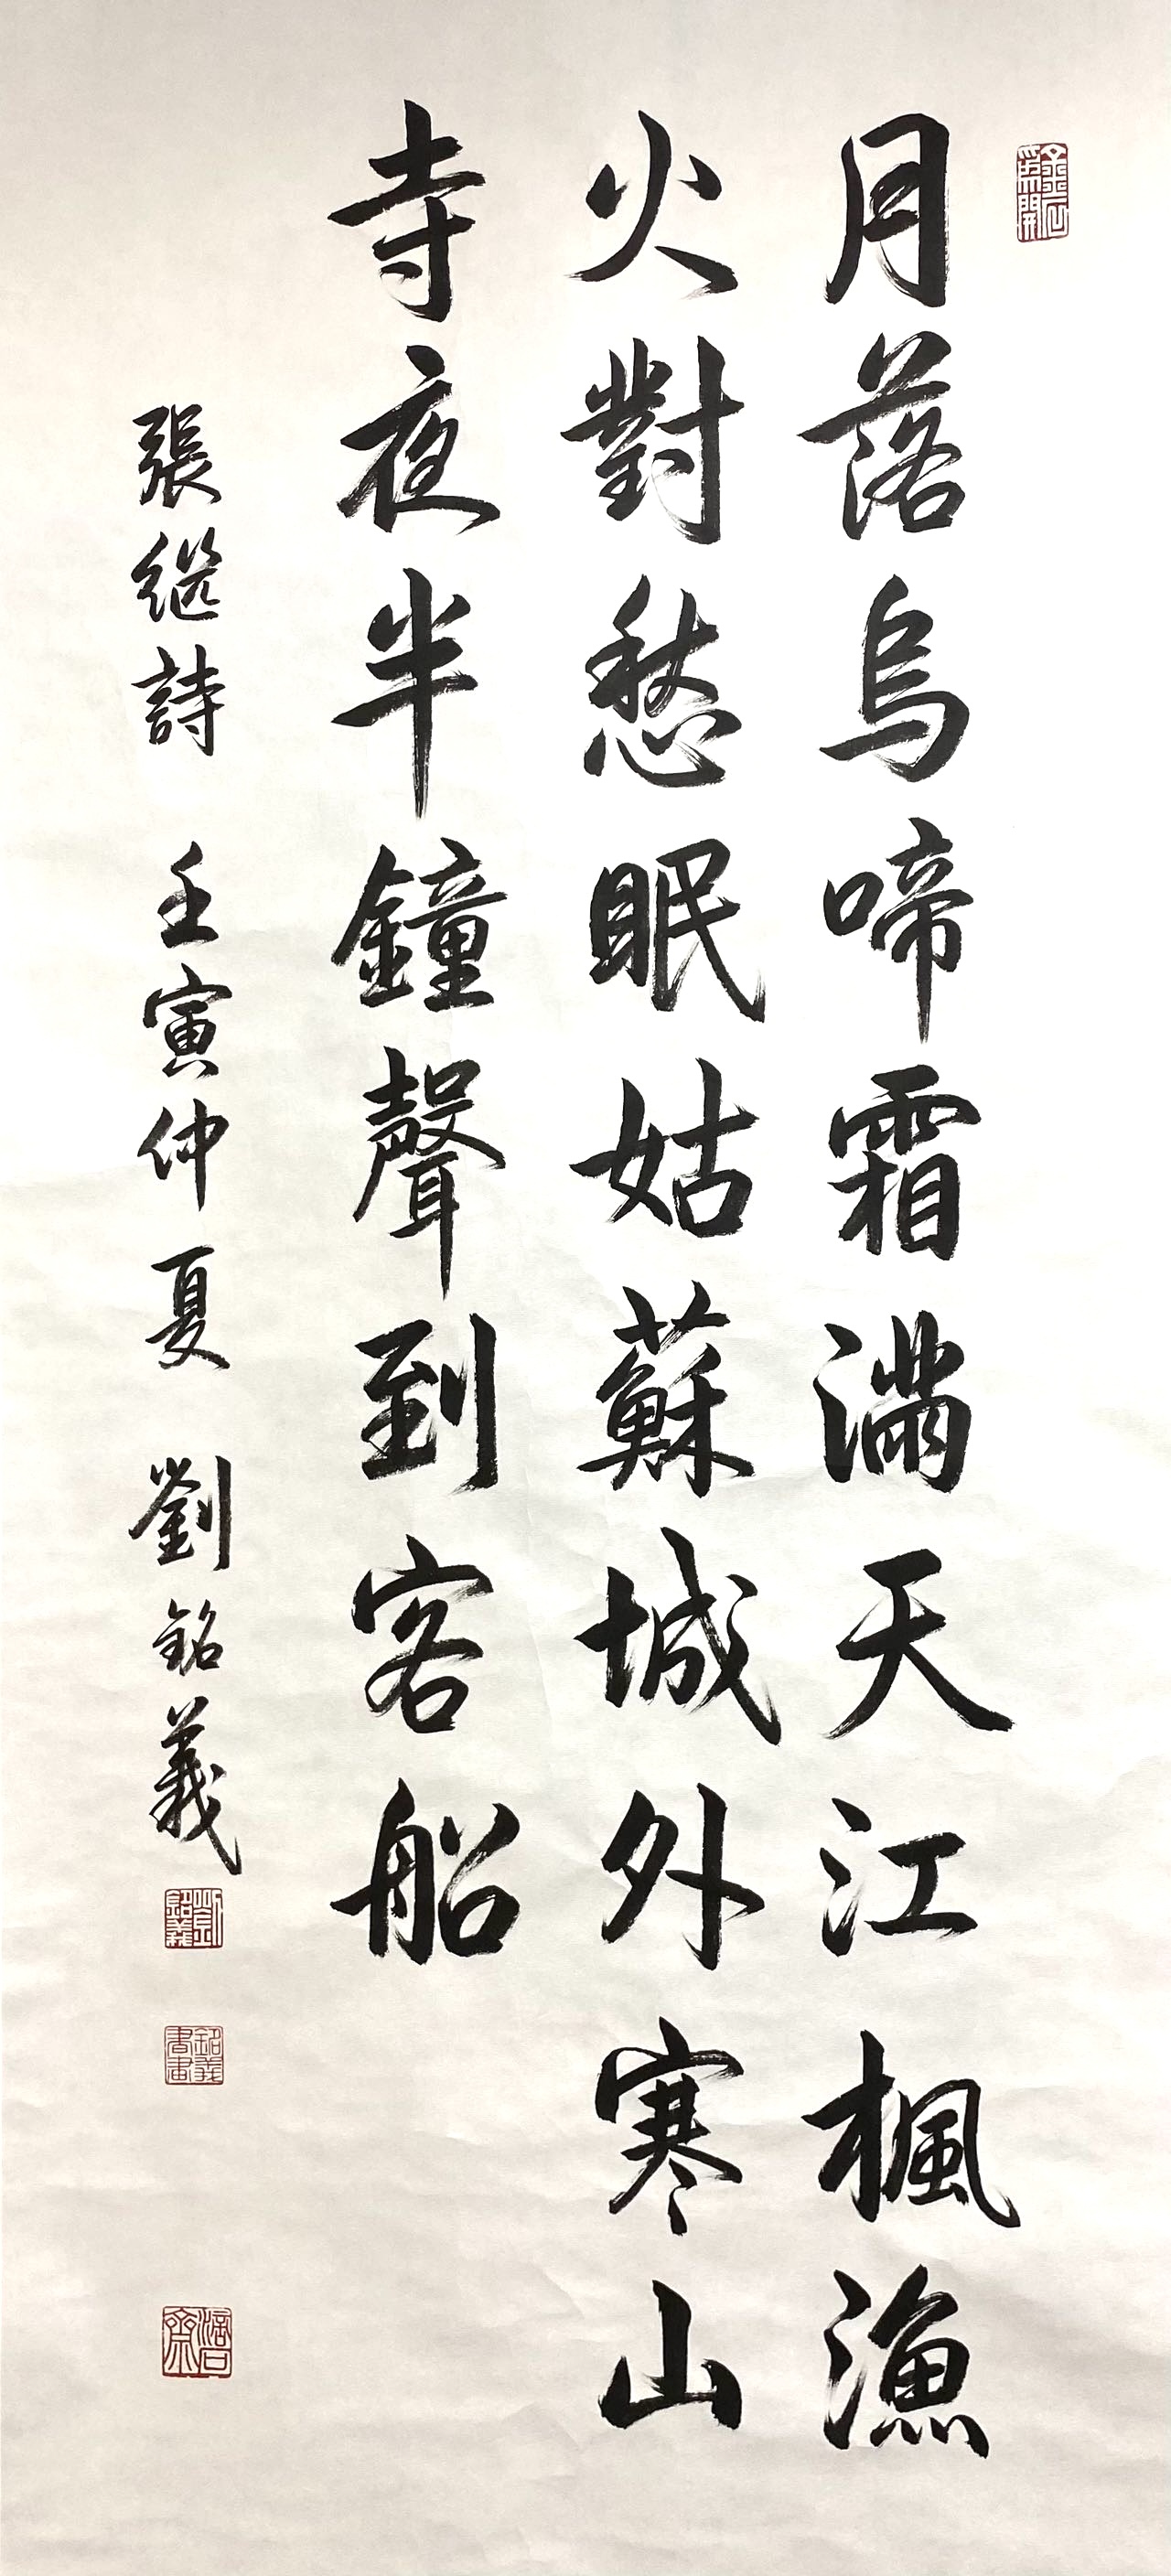 月落烏啼霜滿天江楓漁
火對愁眠姑蘇城外寒山
寺夜半鐘聲到客船
張継詩 壬寅仲夏 劉銘義
劉銘義
銘義書畫